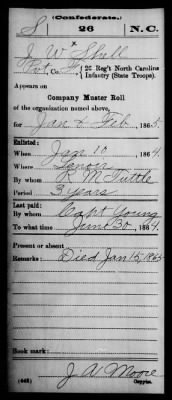 (Confederate.)
S 26 N.C.
J. W. Shell
Pvt, Co. F, 26 Reg't North Carolina
Infantry (State Troops).
Appears on
Company Muster Roll
of the organization named above,
for Jan & Feb, 1865.
Enlisted:
When Jan 10, 1864.
Where Lenoir
By whom R. M. Tuttle
Period 3 years
Last paid:
By whom Capt Young
To what time June 30, 1864.
Present or absent
Remarks: Died Jan 15, 1865
Book mark:
J. A. Moore
(642) Copyist.